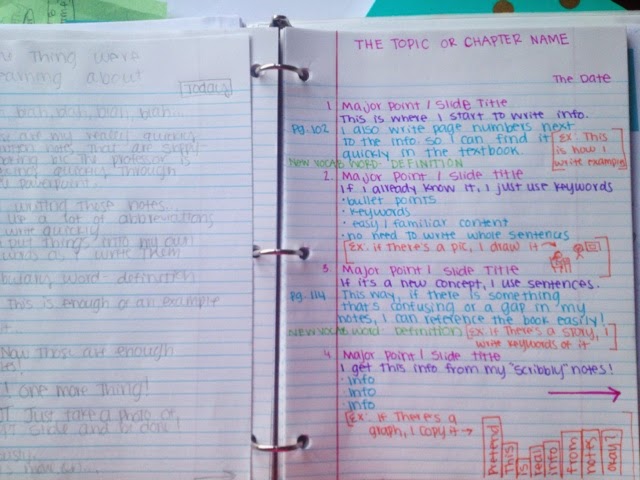 Thing were
learning about
Today
blah, blah, blah, blah...
are my really quickly
notes that are
the professor is
quickly through
powerpoint.
writing these notes...
use a lot of abbreviations
write quickly.
put things into my own
words as I write them
word - definition
This is enough or an example
it.
Now those are enough
notes!
one more thing!
Just take a photo of
slide and be done!
THE TOPIC OR CHAPTER NAME
The Date
1. Major Point / Slide Title
This is where I start to write info.
Pg. 102 I also write page numbers next
to the info so I can find it
quickly in the textbook.
Ex: This
is how I
write examples
NEW VOCAB WORD - DEFINITION
2. Major Point / Slide title
If I already know it, I just use keywords
• bullet points
• keywords
• easy / familiar content
• no need to write whole sentences
Ex: if there's a pic, I draw it →
3. Major Point / Slide Title
If it's a new concept, I use sentences.
Pg. 114 This way, if there is something
that's confusing or a gap in my
notes, I can reference the book easily!
NEW VOCAB Word - Definition
Ex: if There's a story, I
write keywords of it
4. Major Point / Slide title
I get this info from my "scribbly" notes!
• info
• info
• info
Ex: if There's a
graph, I copy it →
Pretend
This
is
real
info
from
notes
okay?